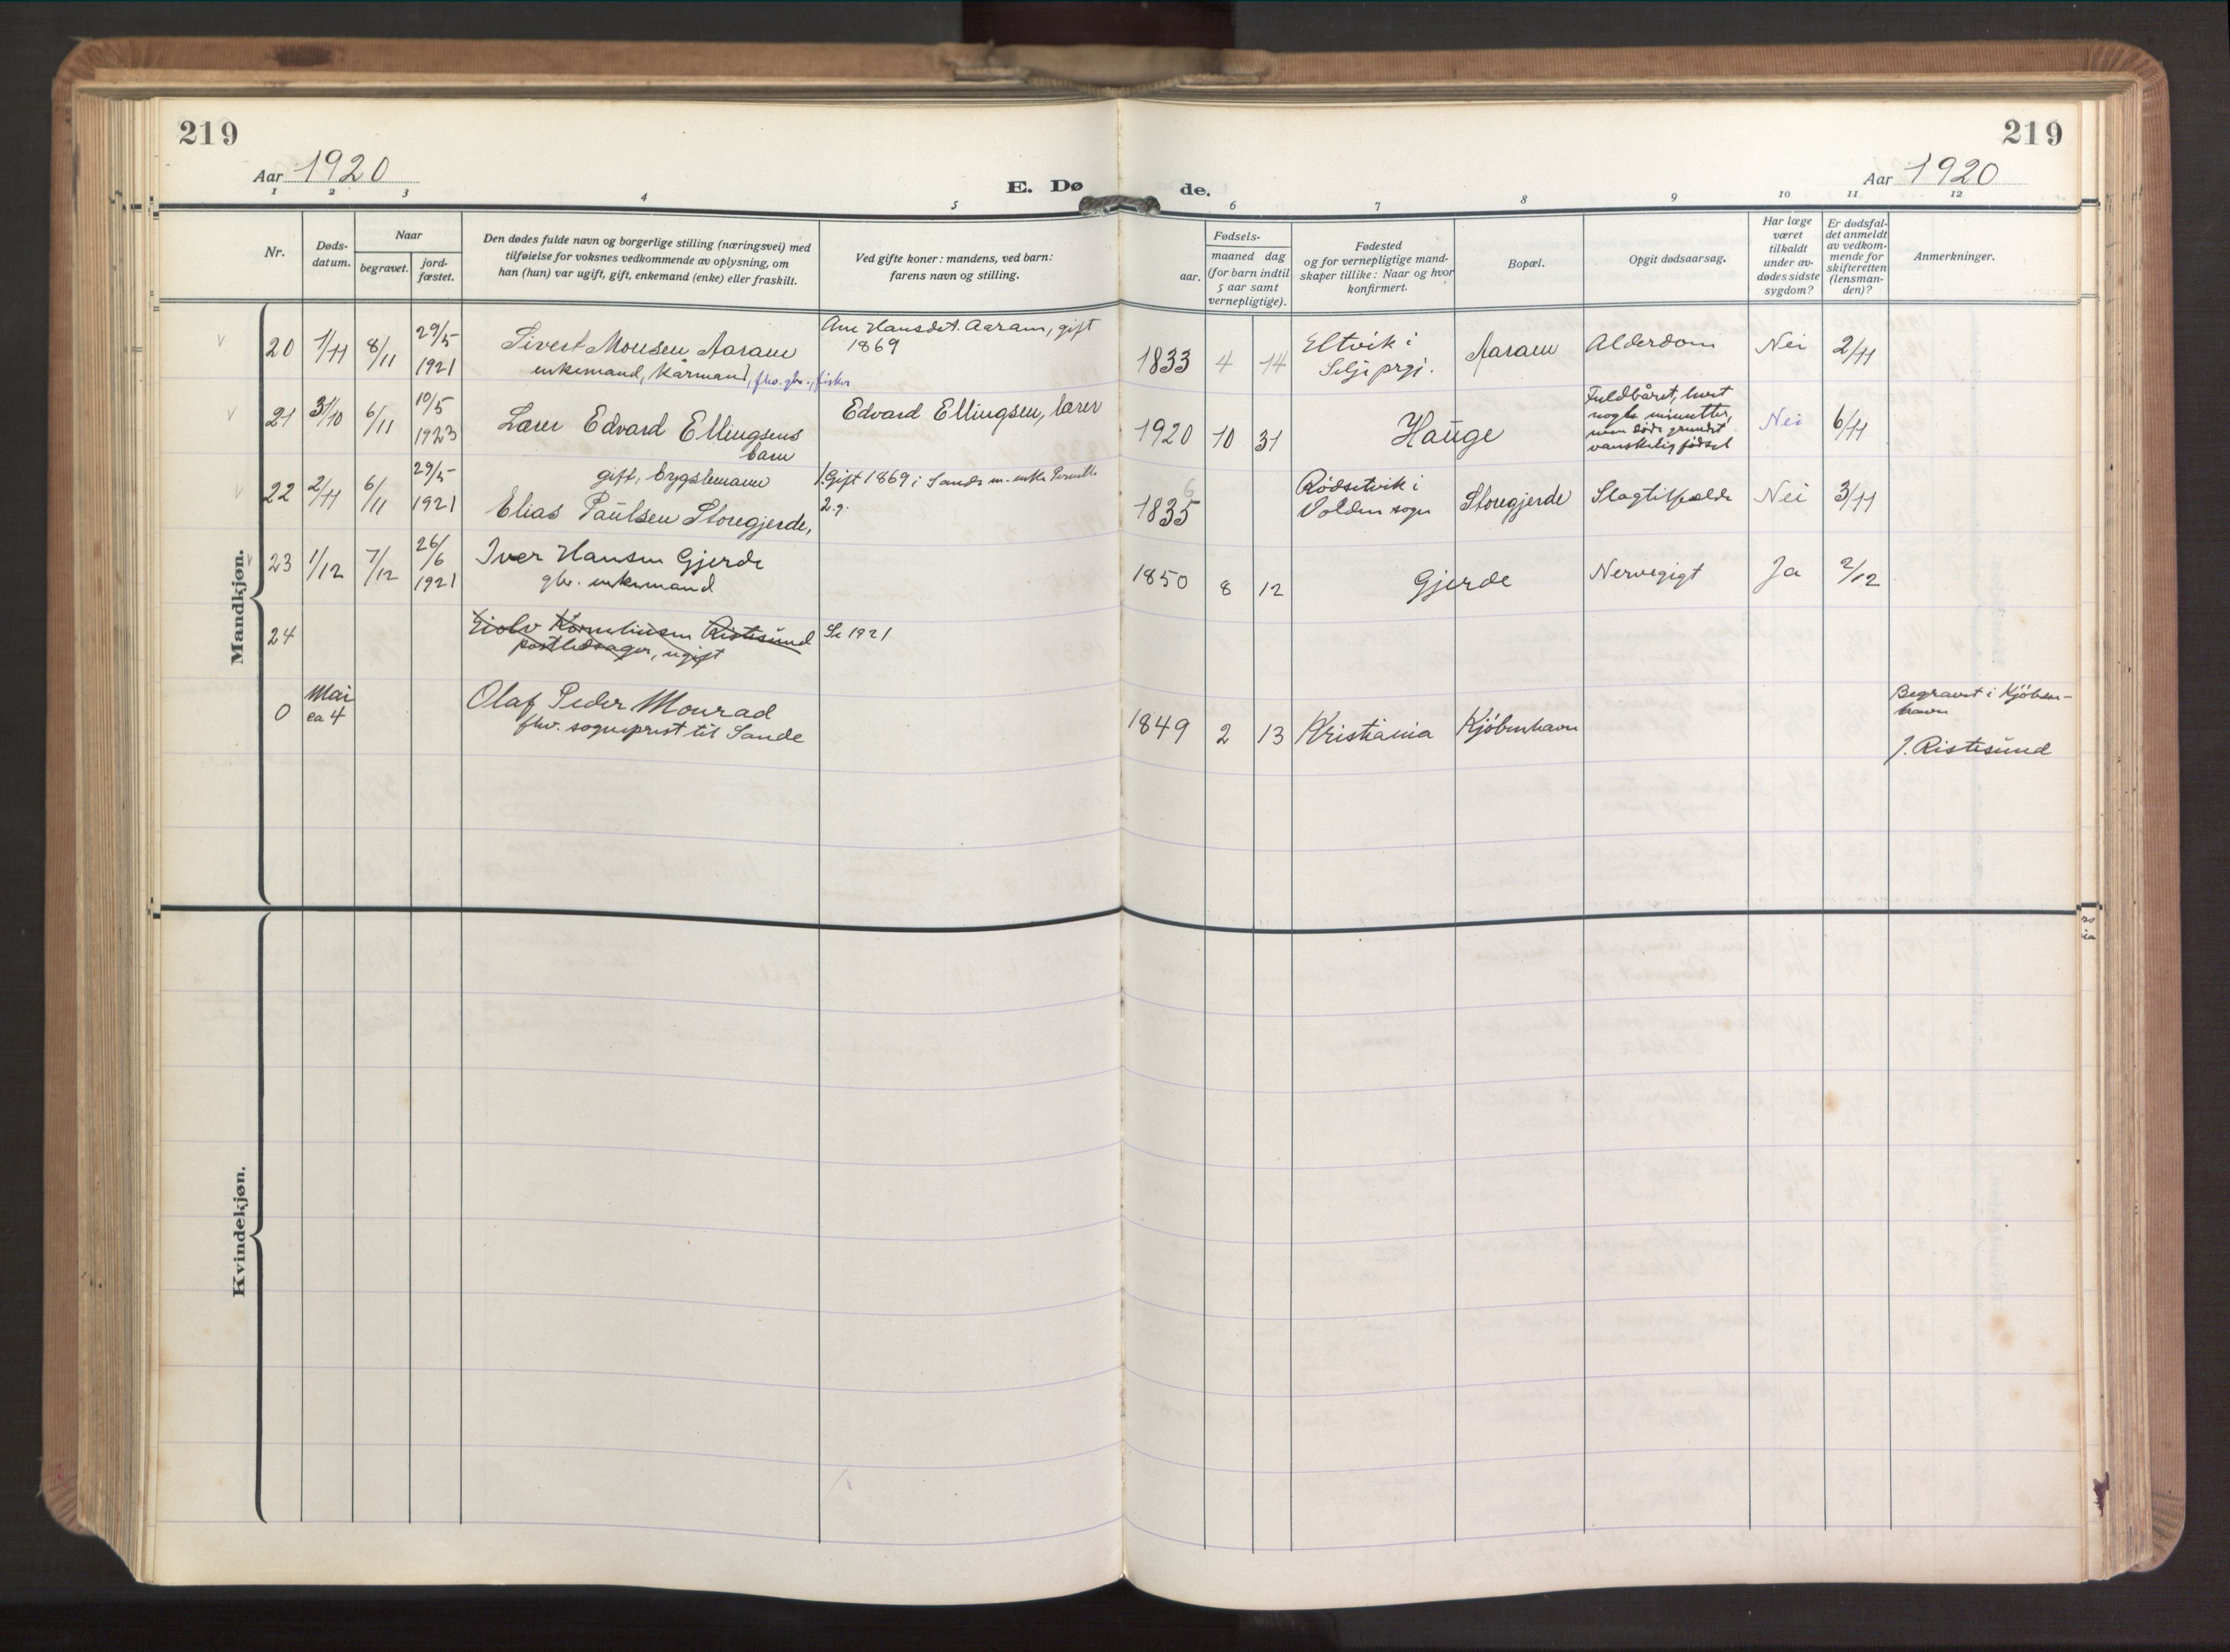 219
219
Aar 1920
Aar 1920
E. Dø
de.
1 2 3 4 5 6 7 8 9 10 11 12
Nr.
Døds-
datum.
Naar
begravet.
jord-
fæstet.
Den dødes fulde navn og borgerlige stilling (næringsvei) med
tilføielse for voksnes vedkommende av oplysning, om
han (hun) var ugift, gift, enkemand (enke) eller fraskilt.
Ved gifte koner: mandens, ved barn:
farens navn og stilling.
Fødsels-
aar.
maaned dag
(for barn indtil
5 aar samt
vernepligtige).
Fødested
og for vernepligtige mand-
skaper tillike: Naar og hvor
konfirmert.
Bopæl.
Opgit dødsaarsag.
Har læge
været
tilkaldt
under av-
dødes sidste
sygdom?
Er dødsfal-
det anmeldt
av vedkom-
mende for
skifteretten
(lensman-
den)?
Anmerkninger.
Mandkjøn.
20 1/11 8/11 29/5 1921
Sivert Monsen Aaram
enkemand, kårmand, fhv. gbr., fisker
Ane Hansdt. Aaram, gift
1869
1833 4 14
Eltvik i
Selje prgj.
Aaram
Alderdom
Nei 2/11
21 31/10 6/11 10/5 1923
Lærer Edvard Ellingsens
barn
Edvard Ellingsen, lærer
1920 10 31
Hauge
Fuldbåret, levet
nogle minutter,
men døde grundet
vanskelig fødsel
Nei 6/11
22 2/11 6/11 29/5 1921
gift, bygslemann
Elias Paulsen Storegjerde,
1. Gift 1869 i Sande m. enke Pernille
2. g.
1835
6
Rødsetvik i
Volden sogn
Storegjerde
Slagtilfælde
Nei 3/11
23 1/12 7/12 26/6 1921
Iver Hansen Gjerde
gbr. enkemand
1850 8 12
Gjerde
Nervegigt
Ja 2/12
24
Eiolv Korneliusen Ristesund
postbedrager, ugift
Se 1921
0 Mai
ca 4
Olaf Peder Monrad
fhv. sogneprest til Sande
1849 2 13
Kristiania
Kjöbenhavn
Begravet i Kjöben-
havn
J. Ristesund
Kvindekjøn.